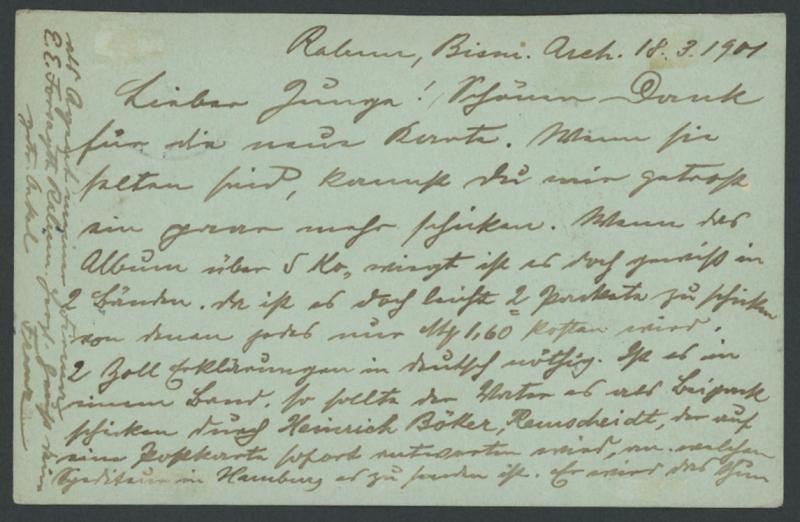 Rabaul, Bism. Arch. 18.3.1901
Lieber Junge! Schönen Dank
für die neue Karte. Wenn sie
selten sind, kannst du mir getrost
ein paar mehr schicken. Wenn das
Album über 5 Ko, wiegt ist es doch gewiß in
2 Bänden. da ist es doch leicht 2 Packete zu schicken
von denen jedes nur M 1,60 kosten wird.
2 Zoll Erklärungen in deutsch nöthig. Ist es in
einem Band. so sollte der Vater es als Beipack
schicken durch Heinrich Böker, Remscheidt, der auf
eine Postkarte sofort antworten wird, an welchen
Spediteur in Hamburg es zu senden ist. Er wird das thun
als Agent meiner Firma
E. E. Forsayth. Herzl. Gruß Dein